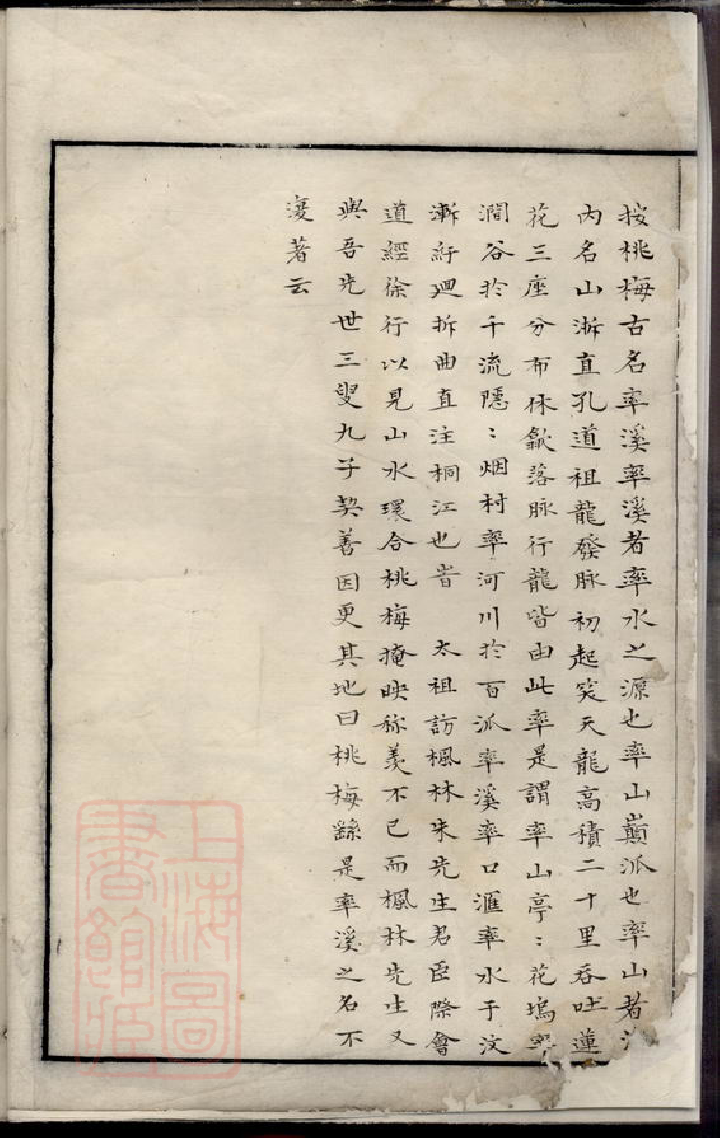 按桃梅古名率溪率溪者率水之源也率山巔派也率山者
内名山浙直孔道祖龍發脉初起突天龍高積二十里吞吐蓮
花三座分布休歙落脉行龍皆由此率是謂率山亭:花塢
澗谷扵千流隱:烟村率河川扵百派率溪率口滙率水于汶
淅紆廻拆曲直注桐江也昔 太祖訪楓林朱先生君臣際會
道經徐行以見山水環合桃梅掩映称羡不已而楓林先生又
與吾先世三叟九子契善因更其地曰桃梅繇是率溪之名不
復著云
上海圖
書館藏